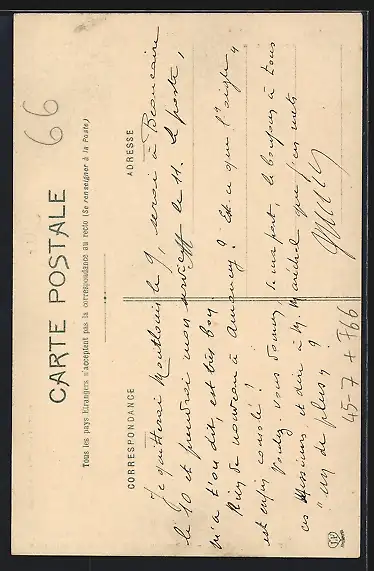 66
CARTE POSTALE
Tous les pays Etrangers n'acceptent pas la correspondance au recto (Se renseigner à la Poste)
CORRESPONDANCE
ADRESSE
Je quitterai Montlouis le 9, serai à Beaucaire
le 10 et prendrai mon service le 11. Le poste,
m'a t'on dit, est très bon
Rien de nouveau à Annecy? Est-ce que l'aigle,
est enfin consolé?
Voulez-vous donner, de ma part, le bonjour à tous
ces Messieurs et dire à M. Maréchal que j'en mets
"un de plus"?
45-7 + 766